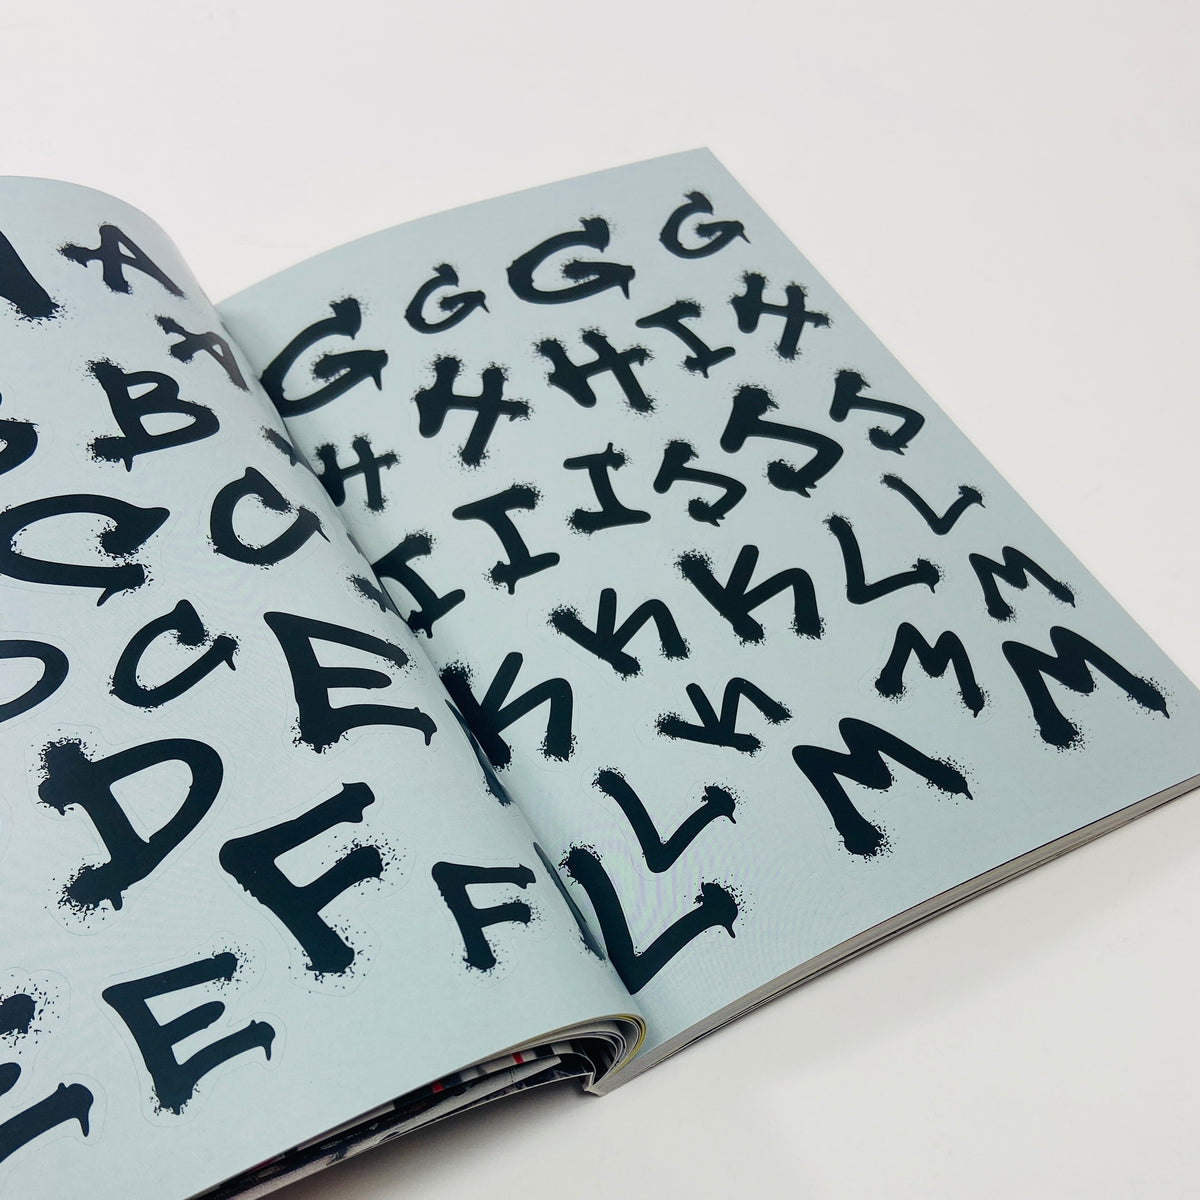 A
A
B B
C C
C
D E
D F F
E E
G G G G
H H H I H
I I I J J J
K K K L L
K M M
L M M
L